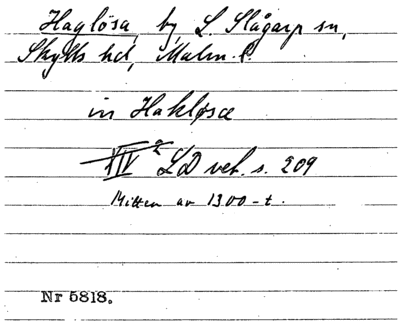 Haglösa, by, L. Slågarp sn,
Skytts hd, Malm. l.
in Hakløsæ
XIV 2 LD vet. s. 209
Mitten av 1300-t.
Nr 5818.